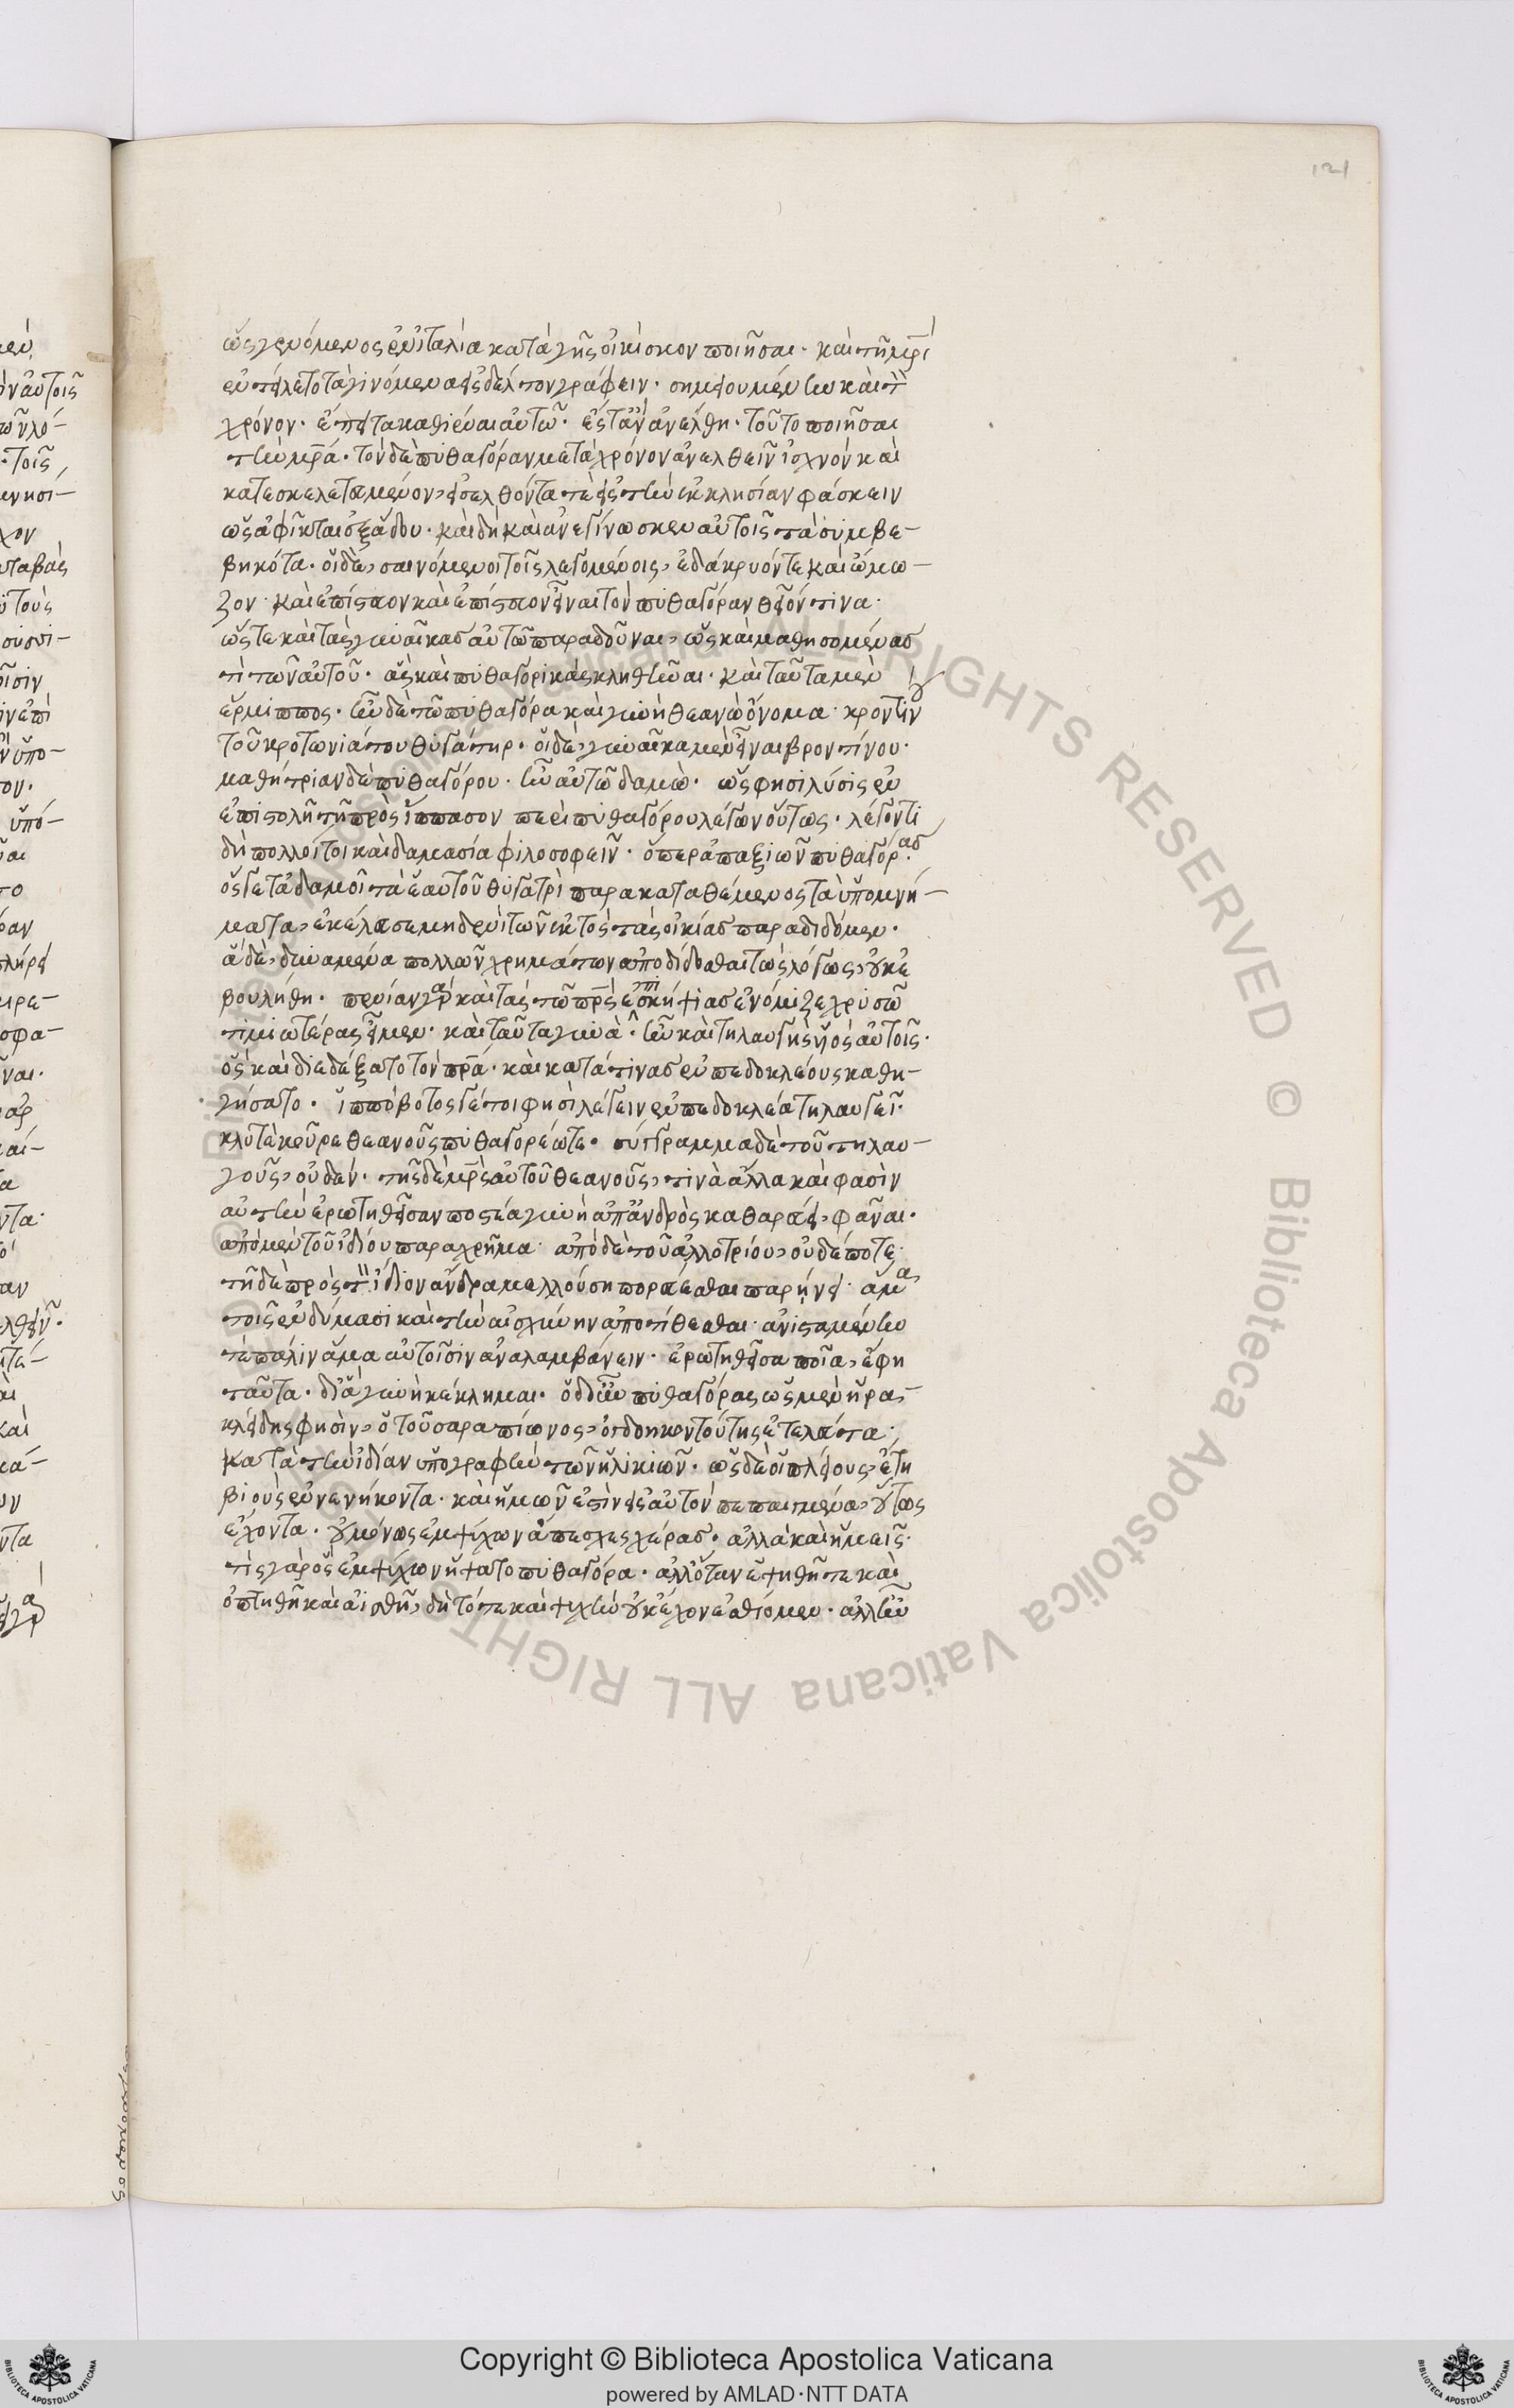 121
ὡς γενόμενος ἐν ἰταλία κατὰ γῆς οἰκίσκον ποιῆσαι· καὶ τῆ μρ̅ι
ἐνετείλατο τὰ γινόμενα εἰς δέλτον γράφειν· σημειουμένην καὶ τὸν
χρόνον· ἔπειτα καθιέναι αὐτῶ· ἔς τ' ἂν ἀνέλθη· τοῦτο ποιῆσαι
τὴν μρ̅α· τὸν δὲ πυθαγόραν μετὰ χρόνον ἀνελθεῖν ἰσχνὸν καὶ
κατεσκελετευμένον, εἰσελθόντα τὲ εἰς τὴν ἐκκλησίαν φάσκειν
ὡς ἀφῖκται ἐξ ἅδου· καὶ δὴ καὶ ἀνεγίνωσκεν αὐτοῖς τὰ συμβε-
βηκότα· οἱ δὲ, σαινόμενοι τοῖς λεγομένοις, ἐδάκρυόν τε καὶ ὤμω-
ζον· καὶ ἐπίστευον καὶ ἐπίστευον εἶναι τὸν πυθαγόραν θεῖόν τινα·
ὥστε καὶ τὰς γυναῖκας αὐτῶ παραδοῦναι, ὡς καὶ μαθησομένας
τὶ τῶν αὐτοῦ· ἃς καὶ πυθαγορικὰς κληθῆναι· καὶ ταῦτα μὲν ὁ
ἕρμιππος· ἦν δὲ τῶ πυθαγόρα καὶ γυνὴ θεανὼ ὄνομα· βροντίνου
τοῦ κροτωνιάτου θυγάτηρ· οἱ δὲ, γυναῖκα μὲν εἶναι βροντίνου·
μαθήτριαν δὲ πυθαγόρου· ἦν αὐτῶ δαμὼ· ὥς φησι λύσις ἐν
ἐπιστολῆ τῆ πρὸς ἵππασον περὶ πυθαγόρου λέγων οὕτως· λέγοντι
δὴ πολλοί τοι καὶ δαμασία φιλοσοφεῖν· ὅπερ ἀπαξιῶν πυθαγόρας·
ὅς γέ τᾶ δαμοῖ τᾶ ἑαυτοῦ θυγατρὶ παρακαταθέμενος τὰ ὑπομνή-
ματα, ἐκέλευσε μηδενὶ τῶν ἐκτὸς τᾶς οἰκίας παραδιδόμεν·
ἁ δὲ, δυναμένα πολλῶν χρημάτων ἀποδίδοσθαι τὼς λόγως, οὐκ ἐ
βουλήθη· πενίαν γὰρ καὶ τὰς τῶ πρ̅ς ἐπισκήψιας ἐνόμιζε χρυσῶ
τιμιωτέρας εἶμεν· καὶ ταῦτα γυνὰ· ἦν καὶ τηλαυγὴς υἱὸς αὐτοῖς·
ὃς καὶ διεδέξατο τὸν πρ̅α· καὶ κατά τινας ἐμπεδοκλέους καθη-
γήσατο· ἱππόβοτος γέ τοί φησι λέγειν ἐμπεδοκλέα τηλαυγεῖ·
κλυτὲ κοῦρε θεανοῦς πυθαγορέω τε· σύγγραμμα δὲ τοῦ τηλαυ-
γοῦς, οὐδέν· τῆς δὲ μρ̅ς αὐτοῦ θεανοῦς, τινὰ ἀλλὰ καὶ φασὶν
αὐτὴν ἐρωτηθεῖσαν ποσταία γυνὴ ἀπ' ἀνδρὸς καθαρεύει, φᾶναι·
ἀπὸ μὲν τοῦ ἰδίου παραχρῆμα· ἀπὸ δὲ τοῦ ἀλλοτρίου, οὐδέποτε·
τῆ δὲ πρὸς τὸν ἴδιον ἄνδρα μελλούση πορεύεσθαι παρήνει· ἅμα
τοῖς ἐνδύμασι καὶ τὴν αἰσχύνην ἀποτίθεσθαι· ἀνισταμένην
τὲ πάλιν ἅμα αὐτοῖσιν ἀναλαμβάνειν· ἐρωτηθεῖσα ποῖα, ἔφη
ταῦτα· δι' ἃ γυνὴ κέκλημαι· ὁ δ' οὖν πυθαγόρας ὡς μὲν ἡρα-
κλείδης φησὶν, ὁ τοῦ σαραπίωνος, ὀγδοηκοντούτης ἐτελεύτα·
κατὰ τὴν ἰδίαν ὑπογραφὴν τῶν ἡλικιῶν· ὡς δὲ οἱ πλείους, ἔτη
βιοὺς ἐνενήκοντα· καὶ ἡμῶν ἐστὶν εἰς αὐτὸν πεπαιγμένα, οὕτως
ἔχοντα· οὐ μόνος ἐμψύχων ἄπεσχες χέρας· ἀλλὰ καὶ ἡμεῖς·
τίς γὰρ ὃς ἐμψύχων ἥψατο πυθαγόρα· ἀλλ' ὅταν ἑψηθῆ τι καὶ
ὀπτηθῆ καὶ ἁλισθῆ, δὴ τότε καὶ ψυχὴν οὐκ ἔχον ἐσθίομεν· ἄλλ' ἦν